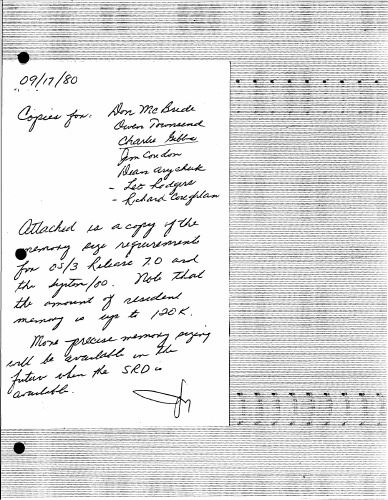 09/17/80
Copies for: Don McBride
Owen Townsend
Charlie Gibbs
Jim Condon
Dean
- Les Rodgers
- Richard
Attached is a copy of the
memory size requirements
for OS/3 Release 7.0 and
the System/80. Note that
the amount of resident
memory is up to 120K.
More precise memory sizing
will be available in the
future when the SRD is
available.